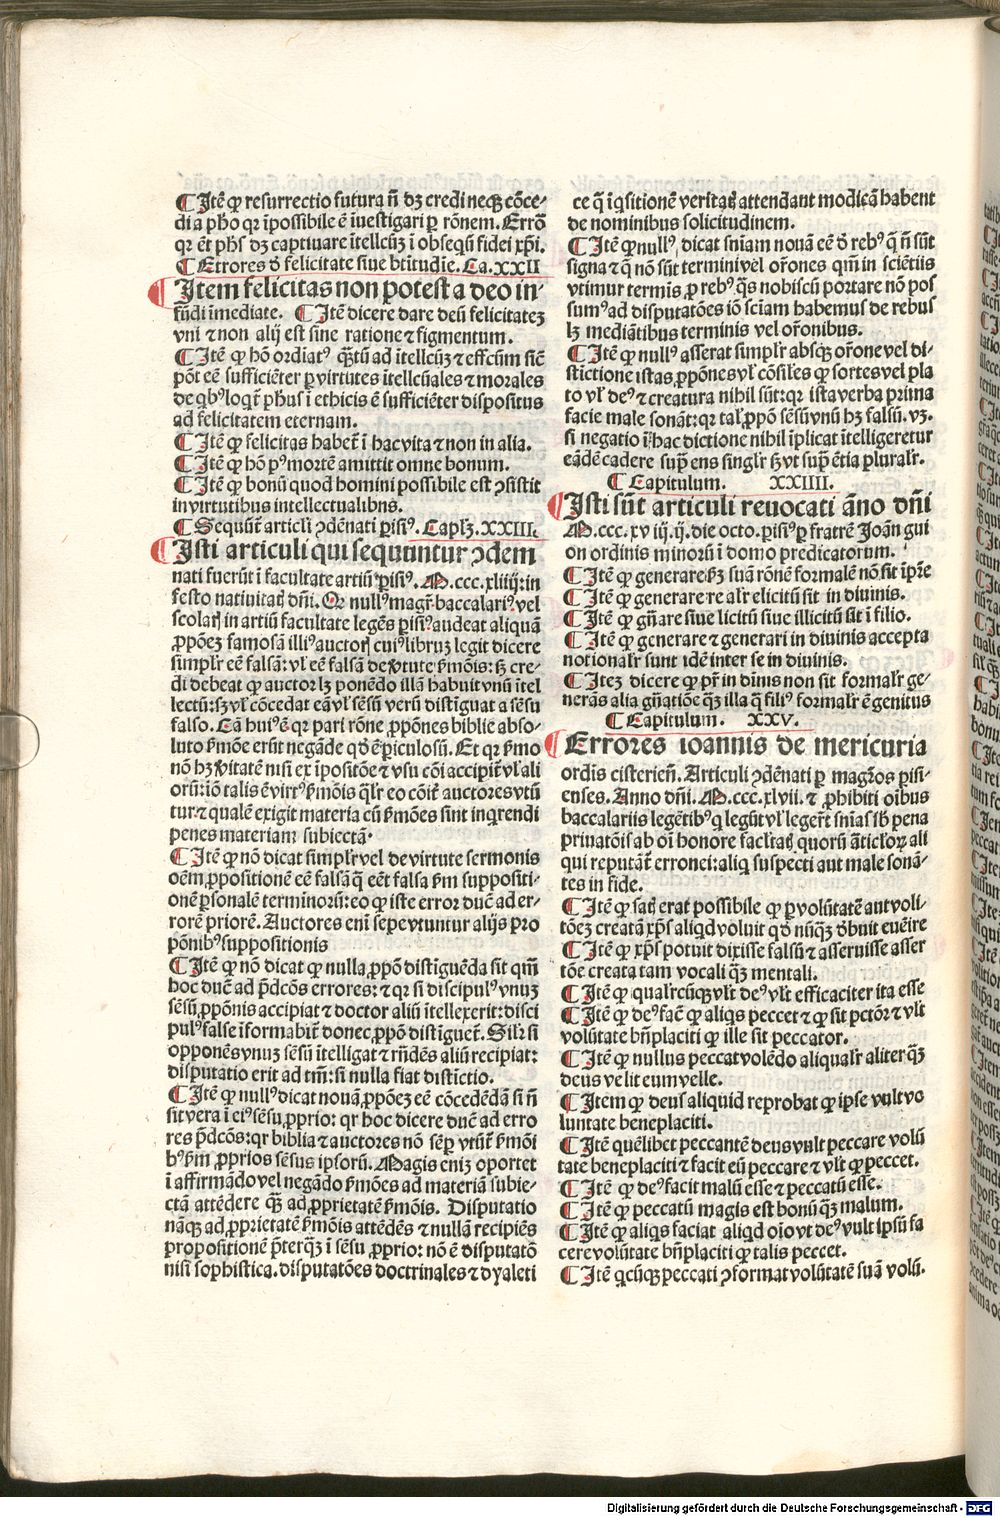 ¶ Itē ꝙ resurrectio futura nō dꝫ credi neqꝫ cōce-
di a pho qr īpossibile ē īuestigari ꝑ rōnem. Errō
qr ēt phs dꝫ captiuare ītellcūꝫ ī obsequiū fidei xp̄i.
¶ Errores ꝺ felicitate siue btītudīe. Ca. XXII
Item felicitas non potest a deo in-
fūdi īmediate. ¶ Itē dicere dare deū felicitateꝫ
vni ⁊ non alij est sine ratione ⁊ figmentum.
¶ Itē ꝙ hō ordīatꝰ q̄tū ad ītellcūꝫ ⁊ effcūm sicē
pōt eē sufficiēter ꝑ virtutes ītellcūales ⁊ morales
de qbꝰ loqt̄ phūs ī ethicis ē sufficiēter dispositus
ad felicitatem eternam.
¶ Itē ꝙ felicitas habet̄ ī hac vita ⁊ non in alia.
¶ Itē ꝙ hō pꝰ mortē amittit omne bonum.
¶ Itē ꝙ bonū quod homini possibile est ꝯsistit
in virtutibus intellectualibus.
¶ Sequūt̄ articli ꝯdēnati ꝑisiꝰ. Caplꝫ. XXIII.
Isti articuli qui sequuntur ꝯdem
nati fuerūt ī facultate artiū ꝑisiꝰ. M. ccc. xliiij: in
festo natiuitatꝭ dn̄i. Qr nullꝰ magr̄ baccalariꝰ vel
scolarꝭ in artiū facultate legēs ꝑisiꝰ audeat aliquā
ꝓpōeꝫ famosā illiꝰ auctorꝭ cuiꝰ librꝫ legit dicere
simplr̄ eē falsā: vl̄ eē falsā de v̄tute ẜmōis: sꝫ cre-
di debeat ꝙ auctor lꝫ ponēdo illā habuit vnū ītel
lectū: sꝫ vl̄ cōcedat eā vl̄ sēsū verū distīguat a sēsu
falso. Cā huiꝰ ē qr pari rōne ꝓpōnes biblie abso-
luto ẜmōe erūt negāde qd̄ ē ꝑiculosū. Et qr ẜmo
nō hꝫ v̄itatē nisi ex īpositōe ⁊ vsu cōi accipit̄ vl̄ ali
orū: iō talis ē virtꝰ ẜmōis qlr̄ eo cōit̄ auctores vtū
tur ⁊ qualē exigit materia cū ẜmōes sint inqrendi
penes materiam subiectā.
¶ Itē ꝙ nō dicat simplr̄ vel de virtute sermonis
oēm ꝓpositionē eē falsā q̄ eēt falsa ẜm suppositi-
onē ꝑsonalē terminorū: eo ꝙ iste error ducē ad er-
rorē priorē. Auctores eni sepe vtuntur alijs pro
pōnibꝰ suppositionis
¶ Itē ꝙ nō dicat ꝙ nulla ꝓpō distīguēda sit qm̄
hoc ducē ad p̄dcōs errores: ⁊ qr si discipulꝰ vnuꝫ
sēsū ꝓpōnis accipiat ⁊ doctor aliū ītellexerit: disci
pulꝰ false īformabit̄ donec ꝓpō distīguet̄. Silr̄ si
opponēs vnuꝫ sēsū ītelligat ⁊ rn̄dēs aliū recipiat:
disputatio erit ad tm̄: si nulla fiat distīctio.
¶ Itē ꝙ nullꝰ dicat nouā ꝓpōeꝫ eē cōcedēdā si nō
sit vera ī eiꝰ sēsu ꝓprio: qr hoc dicere ducē ad erro
res p̄dcōs: qr biblia ⁊ auctores nō semp̄ vtūt̄ ẜmōi
bꝰ ẜm ꝓprios sēsus ipsorū. Magis eniꝫ oportet
ī affirmādo vel negādo ẜmōes ad materiā subie-
ctā attēdere qꝫ̄ ad ꝓprietatē ẜmōis. Disputatio
nāqꝫ ad ꝓprietatē ẜmōis attēdēs ⁊ nullā recipiēs
propositionē p̄terqꝫ̄ ī sēsu ꝓprio: nō ē disputatō
nisi sophistica. disputatōes doctrinales ⁊ dyaleti
ce q̄ īqsitionē veritatꝭ attendant modicā habent
de nominibus solicitudinem.
¶ Itē ꝙ nullꝰ dicat sn̄iam nouā eē ꝺ rebꝰ q̄ nō sūt
signa ⁊ q̄ nō sūt termini vel or̄ones qm̄ in sciētiis
vtimur termis ꝓ rebꝰ qs nobiscū portare nō pos
sumꝰ ad disputatōes iō sciam habemus de rebus
lꝫ mediātibus terminis vel or̄onibus.
¶ Itē ꝙ nullꝰ asserat simplr̄ absqꝫ or̄one vel di-
stīctione istas ꝓpōnes vl̄ cōsiles ꝙ sortes vel pla
to vl̄ deꝰ ⁊ creatura nihil sūt: qr ista verba prima
facie male sonāt: qr tal̄ ꝓpō sēsū vnū hꝫ falsū. vꝫ.
si negatio ī hac dictione nihil īplicat ītelligeretur
eādē cadere suꝑ ens singlr̄ sꝫ vt suꝑ ētia pluralr̄.
¶ Capitulum. XXIIII.
Isti sūt articuli reuocati āno dn̄i
M. ccc. xv iij. ij. die octo. ꝑisiꝰ ꝑ fratrē Joān gui
on ordinis minorū ī domo predicatorum.
¶ Itē ꝙ generare ẜꝫ suā rōnē formalē nō sit ī pr̄e
¶ Itē ꝙ generare re alr̄ elicitū sit in diuinis.
¶ Itē ꝙ gn̄are siue licitū siue illicitū sit ī filio.
¶ Itē ꝙ generare ⁊ generari in diuinis accepta
notionalr̄ sunt idē inter se in diuinis.
¶ Iteꝫ dicere ꝙ pr̄ in dinis non sit formalr̄ ge-
nerās alia gn̄atiōe qꝫ̄ illa q̄ filiꝰ formalr̄ ē genitus
¶ Capitulum. XXV.
Errores ioannis de mericuria
ordīs cistericn̄. Articuli ꝯdēnati ꝑ magr̄os ꝑisi-
enses. Anno dn̄i. M. ccc. xlvii. ⁊ ꝓhibiti oībus
baccalariis legētibꝰ q legūt vl̄ leger̄t sn̄ias sb̄ pena
priuatōis ab oī honore facltatꝭ quorū ārticloꝝ ali
qui reputāt̄ erronei: aliq suspecti aut male sonā-
tes in fide.
¶ Itē ꝙ satꝭ erat possibile ꝙ ꝑ volūtatē aut voli-
tōeꝫ creatā xp̄s aliqd voluit qd̄ nūqꝫ ꝺbuit euēire
¶ Itē ꝙ xp̄s potuit dixisse falsū ⁊ asseruisse asser
tōe creata tam vocali qꝫ̄ mentali.
¶ Itē ꝙ qualr̄cūqꝫ vlt deꝰ vlt efficaciter ita esse
¶ Itē ꝙ deꝰ facē ꝙ aliqs peccet ⁊ ꝙ sit pctōr ⁊ vlt
volūtate bn̄placiti ꝙ ille sit peccator.
¶ Itē ꝙ nullus peccat volēdo aliqualr̄ aliter qꝫ̄
deus velit eum velle.
¶ Item ꝙ deus aliquid reprobat ꝙ ipse vult vo
luntate beneplaciti.
¶ Itē quēlibet peccantē deus vult peccare volū
tate beneplaciti ⁊ facit eū peccare ⁊ vlt ꝙ peccet.
¶ Itē ꝙ deꝰ facit malū esse ⁊ peccatū esse.
¶ Itē ꝙ peccatū magis est bonū qꝫ malum.
¶ Itē ꝙ aliqs faciat aliqd oīo vt deꝰ vult ipsū fa
cere volūtate bn̄placiti ꝙ talis peccet.
¶ Itē qcūqꝫ peccati ꝯformat volūtatē suā volū.
Digitalisierung gefördert durch die Deutsche Forschungsgemeinschaft - DFG